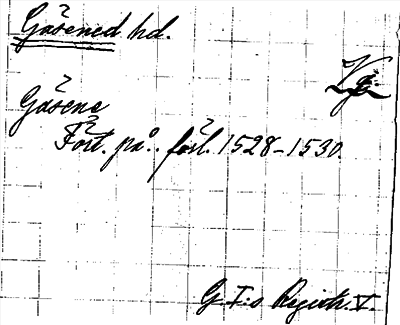 Gåsened hd.
Vg.
Gåsene
Fört. på förl. 1528-1530.
G. I:s Registr. V.